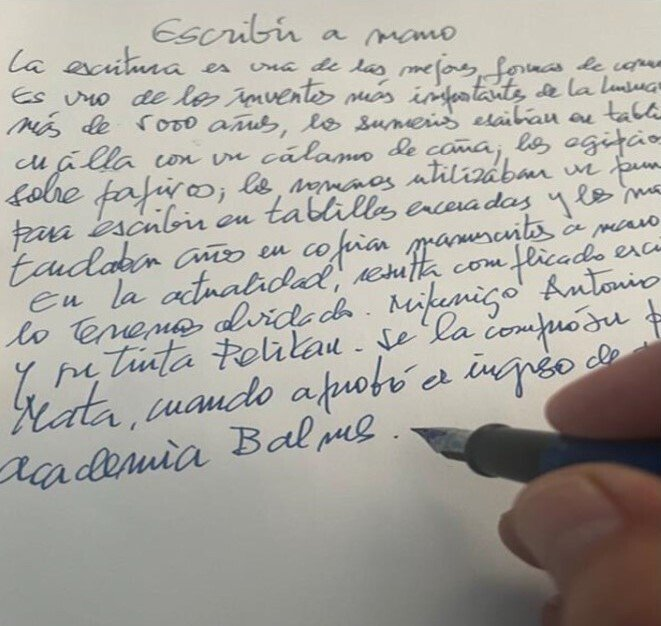 Escribir a mano
La escritura es una de las mejores formas de
Es uno de los inventos más importantes de la
más de 5000 años, los sumerios escribían en
cuálla con un cálamo de caña; los
sobre papiros; los romanos utilizaban un
para escribir en tablillas enceradas y los
tardaban años en copiar manuscritos a mano
En la actualidad, resulta complicado
lo tenemos olvidado. Antonio
y su tinta Pelikan. Se la compró su
Mata, cuando aprobó el ingreso de
academia Balmes.